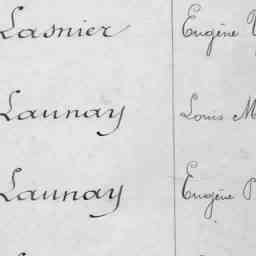 Lasnier Eugène
Launay Louis M
Launay Eugène P